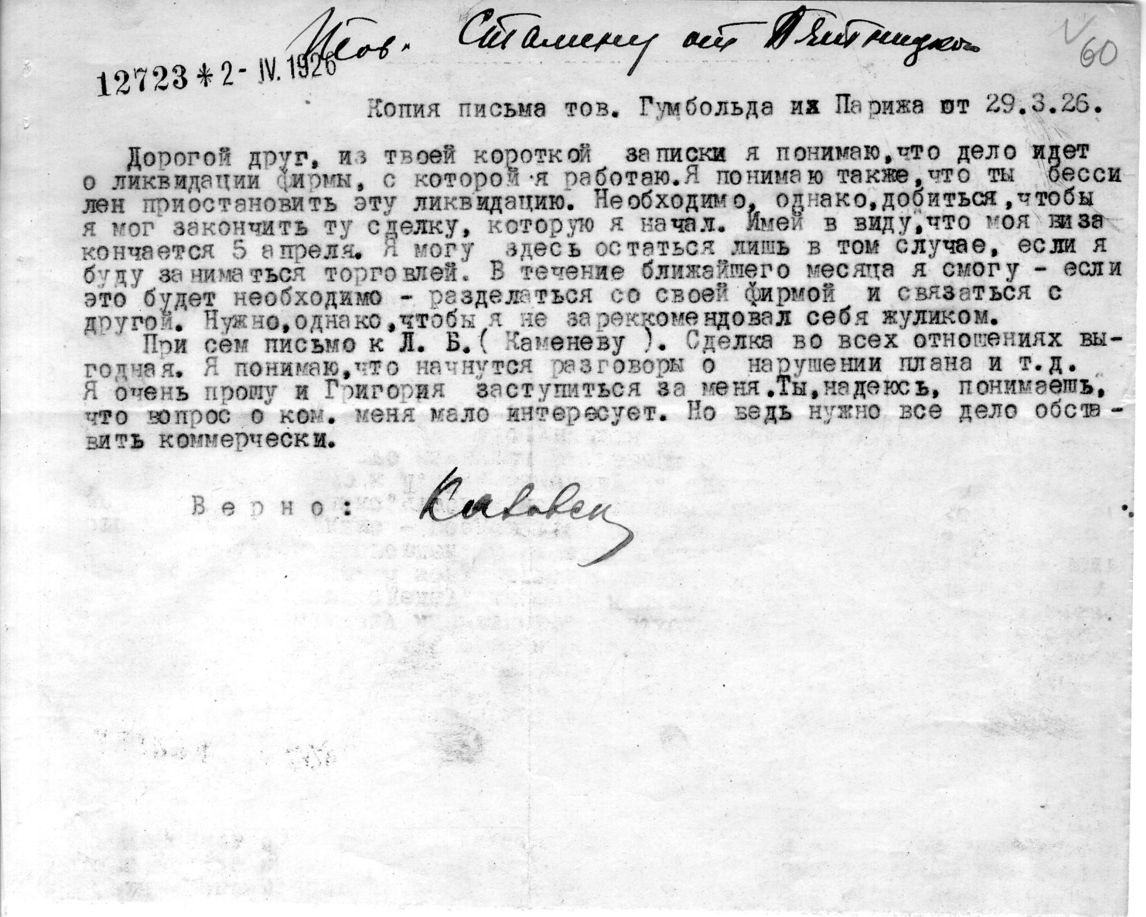 Тов. Сталину от Пятницкого
60
12723 * 2- IV. 1926
Копия письма тов. Гумбольда их Парижа от 29.3.26.
Дорогой друг, из твоей короткой записки я понимаю,что дело идет
о ликвидации фирмы, с которой я работаю.Я понимаю также,что ты бесси
лен приостановить эту ликвидацию. Необходимо, однако,добиться,чтобы
я мог закончить ту сделку, которую я начал. Имей в виду,что моя виза
кончается 5 апреля. Я могу здесь остаться лишь в том случае, если я
буду заниматься торговлей. В течение ближайшего месяца я смогу - если
это будет необходимо - разделаться со своей фирмой и связаться с
другой. Нужно,однако,чтобы я не зареккомендовал себя жуликом.
При сем письмо к Л. Б.( Каменеву ). Сделка во всех отношениях вы-
годная. Я понимаю,что начнутся разговоры о нарушении плана и т.д.
Я очень прошу и Григория заступиться за меня.Ты,надеюсь, понимаешь,
что вопрос о ком. меня мало интересует. Но ведь нужно все дело обста-
вить коммерчески.
Верно: